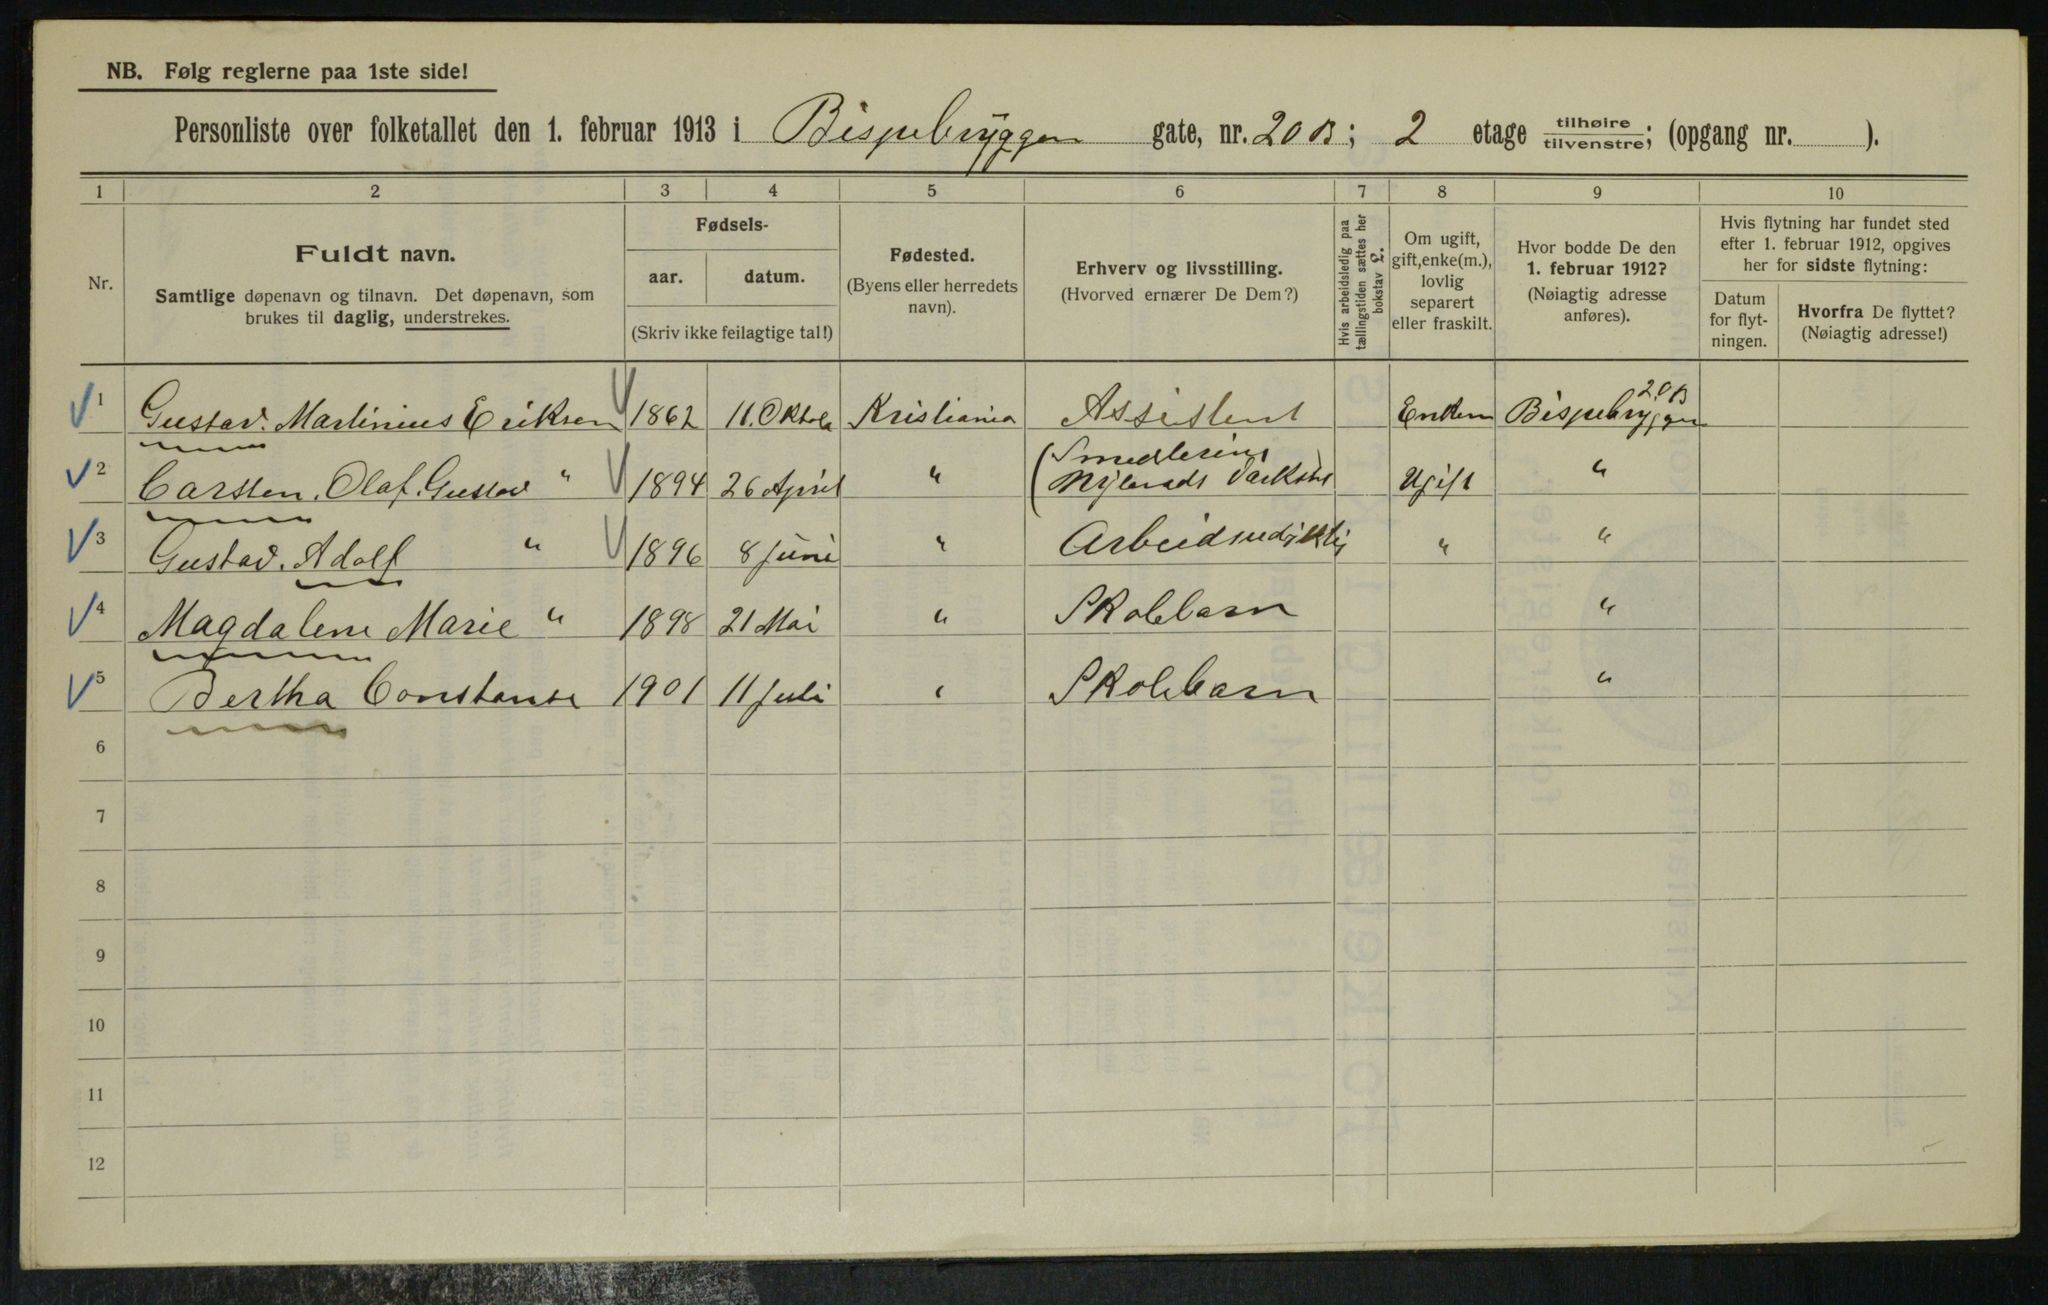 NB. Følg reglerne paa 1ste side!
Personliste over folketallet den 1. februar 1913 i Bispebryggen gate, nr. 20 B; 2 etage tilhøire/tilvenstre; (opgang nr. ).
1 2 3 4 5 6 7 8 9 10
Nr.
Fuldt navn.
Samtlige døpenavn og tilnavn. Det døpenavn, som
brukes til daglig, understrekes.
Fødsels-
aar. datum.
(Skriv ikke feilagtige tal!)
Fødested.
(Byens eller herredets
navn).
Erhverv og livsstilling.
(Hvorved ernærer De Dem?)
Hvis arbeidsledig paa
tællingstiden sættes her
bokstav L.
Om ugift,
gift, enke(m.),
lovlig
separert
eller fraskilt.
Hvor bodde De den
1. februar 1912?
(Nøiagtig adresse
anføres).
Hvis flytning har fundet sted
efter 1. februar 1912, opgives
her for sidste flytning:
Datum
for flyt-
ningen.
Hvorfra De flyttet?
(Nøiagtig adresse!)
1 Gustav. Martinius Eriksen 1862 11. Oktob Kristiania Assistent Enkem Bispebryggen 20B
2 Carsten. Olaf. Gustav " 1894 26 April " Nylands Ugift "
3 Gustav. Adolf " 1896 8 Juni " " "
4 Magdalene Marie " 1898 21 Mai " Skolebarn "
5 Bertha Constanse 1901 11 Juli " Skolebarn "
6
7
8
9
10
11
12